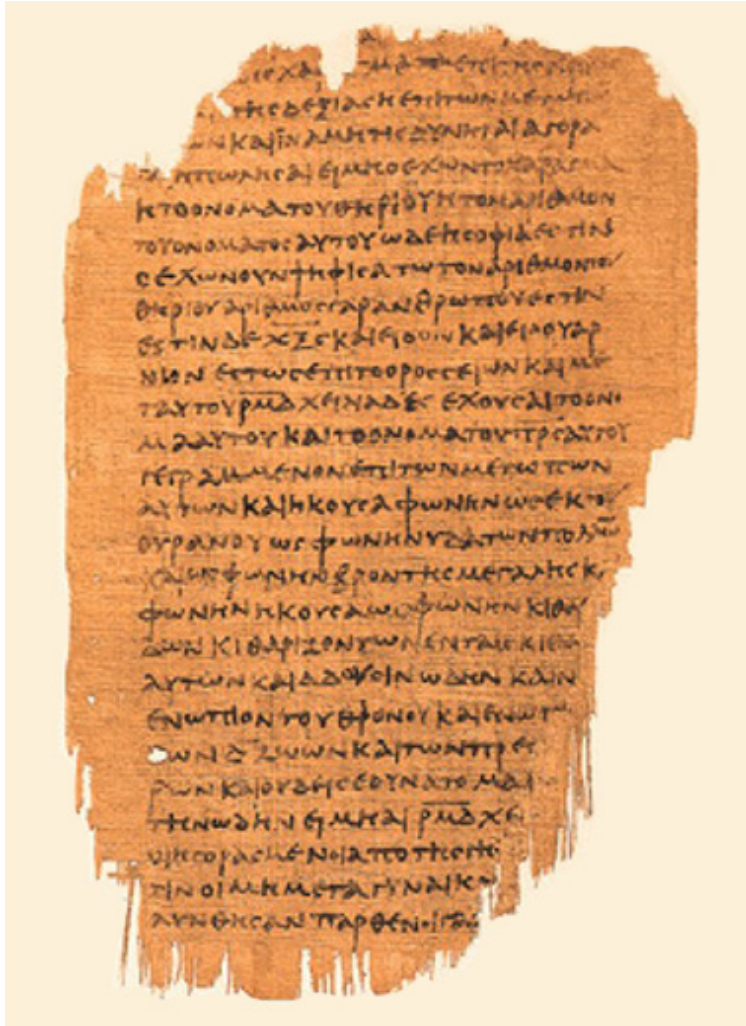 ΤΗϹΔΕΞΙΑϹΗΕΠΙΤΩΝΜΕΤΩ
ΩΝΚΑΙΪΝΑΜΗΤΙϹΔΥΝΗΤΑΙΑΓΟΡΑ
ΗΠΩΛΗϹΑΙΕΙΜΗΟΕΧΩΝΤΟΧΑΡΑΓΜΑ
ΗΤΟΟΝΟΜΑΤΟΥΘΗΡΙΟΥΗΤΟΝΑΡΙΘΜΟΝ
ΤΟΥΟΝΟΜΑΤΟϹΑΥΤΟΥΩΔΕΗϹΟΦΙΑΕϹΤΙΝ
ϹΕΧΩΝΟΥΝΨΗΦΙϹΑΤΩΤΟΝΑΡΙΘΜΟΝΤΟΥ
ΘΗΡΙΟΥΑΡΙΘΜΟϹΓΑΡΑΝΘΡΩΠΟΥΕϹΤΙΝ
ΕϹΤΙΝΔΕΧ̅Ξ̅Ϲ̅ΚΑΙΕΙΔΟΝΚΑΙΕΙΔΟΥΑΡ
ΝΙΟΝΕϹΤΩϹΕΠΙΤΟΟΡΟϹϹΕΙΩΝΚΑΙΜΕ
ΤΑΥΤΟΥΡ̅Μ̅Δ̅ΧΕΙΛΙΑΔΕϹΕΧΟΥϹΑΙΤΟΟΝΟ
ΜΑΑΥΤΟΥΚΑΙΤΟΟΝΟΜΑΤΟΥΠ̅Ρ̅Ϲ̅ΑΥΤΟΥ
ΓΕΓΡΑΜΜΕΝΟΝΕΠΙΤΩΝΜΕΤΩΠΩΝ
ΑΥΤΩΝΚΑΙΗΚΟΥϹΑΦΩΝΗΝΩϹΕΚΤΟΥ
ΟΥΡΑΝΟΥΩϹΦΩΝΗΝΥΔΑΤΩΝΠΟΛΛΩΝ
ΚΑΙΩϹΦΩΝΗΝΒΡΟΝΤΗϹΜΕΓΑΛΗϹΚ
ΦΩΝΗΝΗΚΟΥϹΑΩϹΦΩΝΗΝΚΙΘΑ
ΔΩΝΚΙΘΑΡΙΖΟΝΤΩΝΕΝΤΑΙϹΚΙΘΑ
ΑΥΤΩΝΚΑΙΑΔΟΥϹΙΝΩΔΗΝΚΑΙΝ
ΕΝΩΠΙΟΝΤΟΥΘΡΟΝΟΥΚΑΙΕΝΩΠΙ
ΤΩΝΔ̅ΖΩΩΝΚΑΙΤΩΝΠΡΕϹ
ΡΩΝΚΑΙΟΥΔΕΙϹΕΔΥΝΑΤΟΜΑΘ
ΤΗΝΩΔΗΝΕΙΜΗΑΙΡ̅Μ̅Δ̅ΧΕ
ΟΙΗΓΟΡΑϹΜΕΝΟΙΑΠΟΤΗϹΓΗϹ
ΤΙΝΟΙΜΗΜΕΤΑΓΥΝΑΙΚΩ
ΛΥΝΘΗϹΑΝΠΑΡΘΕΝΟΙΓΑΡ